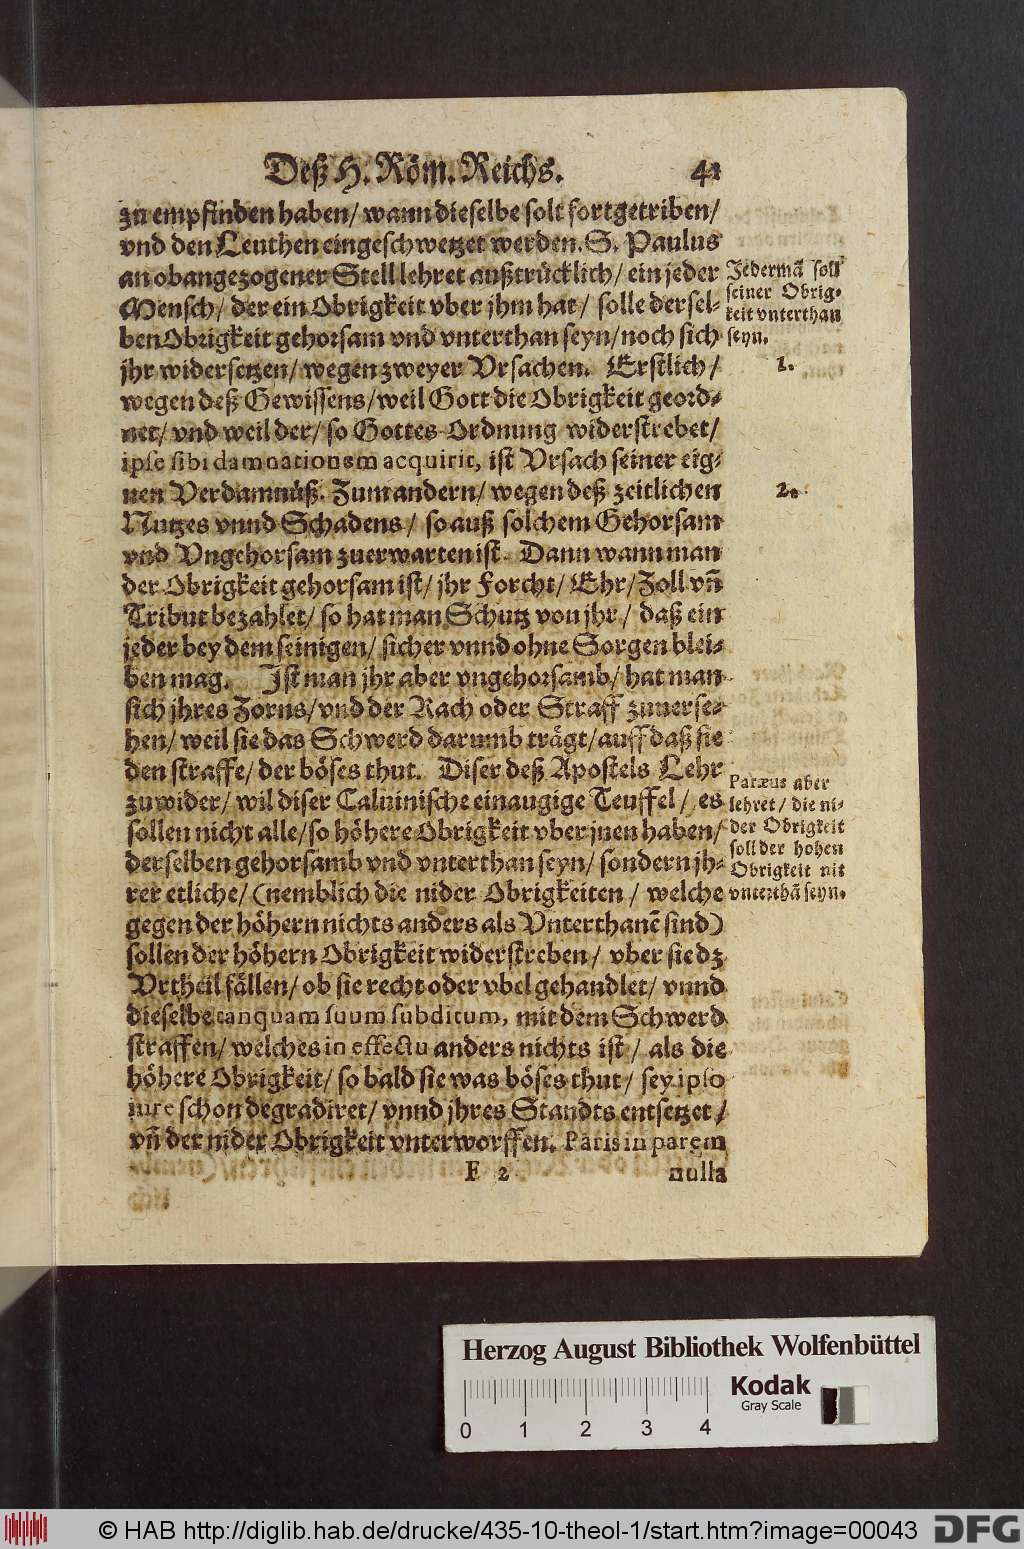 Deß H. Röm. Reichs. 41
zu empfinden haben/ wann dieselbe solt fortgetriben/
vnd den Leuthen eingeschwetzet werden. S. Paulus
an obangezogener Stell lehret außtrücklich/ ein jeder
Mensch/ der ein Obrigkeit vber jhm hat/ solle dersel-
ben Obrigkeit gehorsam vnd vnterthan seyn/ noch sich
jhr widersetzen/ wegen zweyer Vrsachen. Erstlich/
wegen deß Gewissens/ weil Gott die Obrigkeit geord-
net/ vnd weil der/ so Gottes Ordnung widerstrebet/
ipse sibi damnationem acquirit, ist Vrsach seiner eig-
nen Verdamnüß. Zum andern/ wegen deß zeitlichen
Nutzes vnnd Schadens/ so auß solchem Gehorsam
vnd Vngehorsam zuerwarten ist. Dann wann man
der Obrigkeit gehorsam ist/ jhr Forcht/ Ehr/ Zoll vñ
Tribut bezahlet/ so hat man Schutz von jhr/ daß ein
jeder bey dem seinigen/ sicher vnnd ohne Sorgen blei-
ben mag. Ist man jhr aber vngehorsamb/ hat man
sich jhres Zorns/ vnd der Rach oder Straff zuuerse-
hen/ weil sie das Schwerd darumb trägt/ auff daß sie
den straffe/ der böses thut. Diser deß Apostels Lehr
zuwider/ wil diser Caluinische einaugige Teuffel/ es
sollen nicht alle/ so höhere Obrigkeit vber jnen haben/
derselben gehorsamb vnd vnterthan seyn/ sondern jh-
rer etliche/ (nemblich die nider Obrigkeiten/ welche
gegen der höhern nichts anders als Vnterthanẽ sind)
sollen der höhern Obrigkeit widerstreben/ vber sie dz
Vrtheil fällen/ ob sie recht oder vbel gehandlet/ vnnd
dieselbe tanquam suum subditum, mit dem Schwerd
straffen/ welches in effectu anders nichts ist/ als die
höhere Obrigkeit/ so bald sie was böses thut/ sey ipso
iure schon degradiret/ vnnd jhres Standts entsetzet/
vñ der nider Obrigkeit vnterworffen. Paris in parem
F 2 nulla
Jedermã soll
seiner Obrig-
keit vnterthan
seyn.
1.
2.
Paræus aber
lehret/ die ni-
der Obrigkeit
soll der hohen
Obrigkeit nit
vnterthã seyn.
Herzog August Bibliothek Wolfenbüttel
Kodak
Gray Scale
0 1 2 3 4
© HAB http://diglib.hab.de/drucke/435-10-theol-1/start.htm?image=00043
DFG